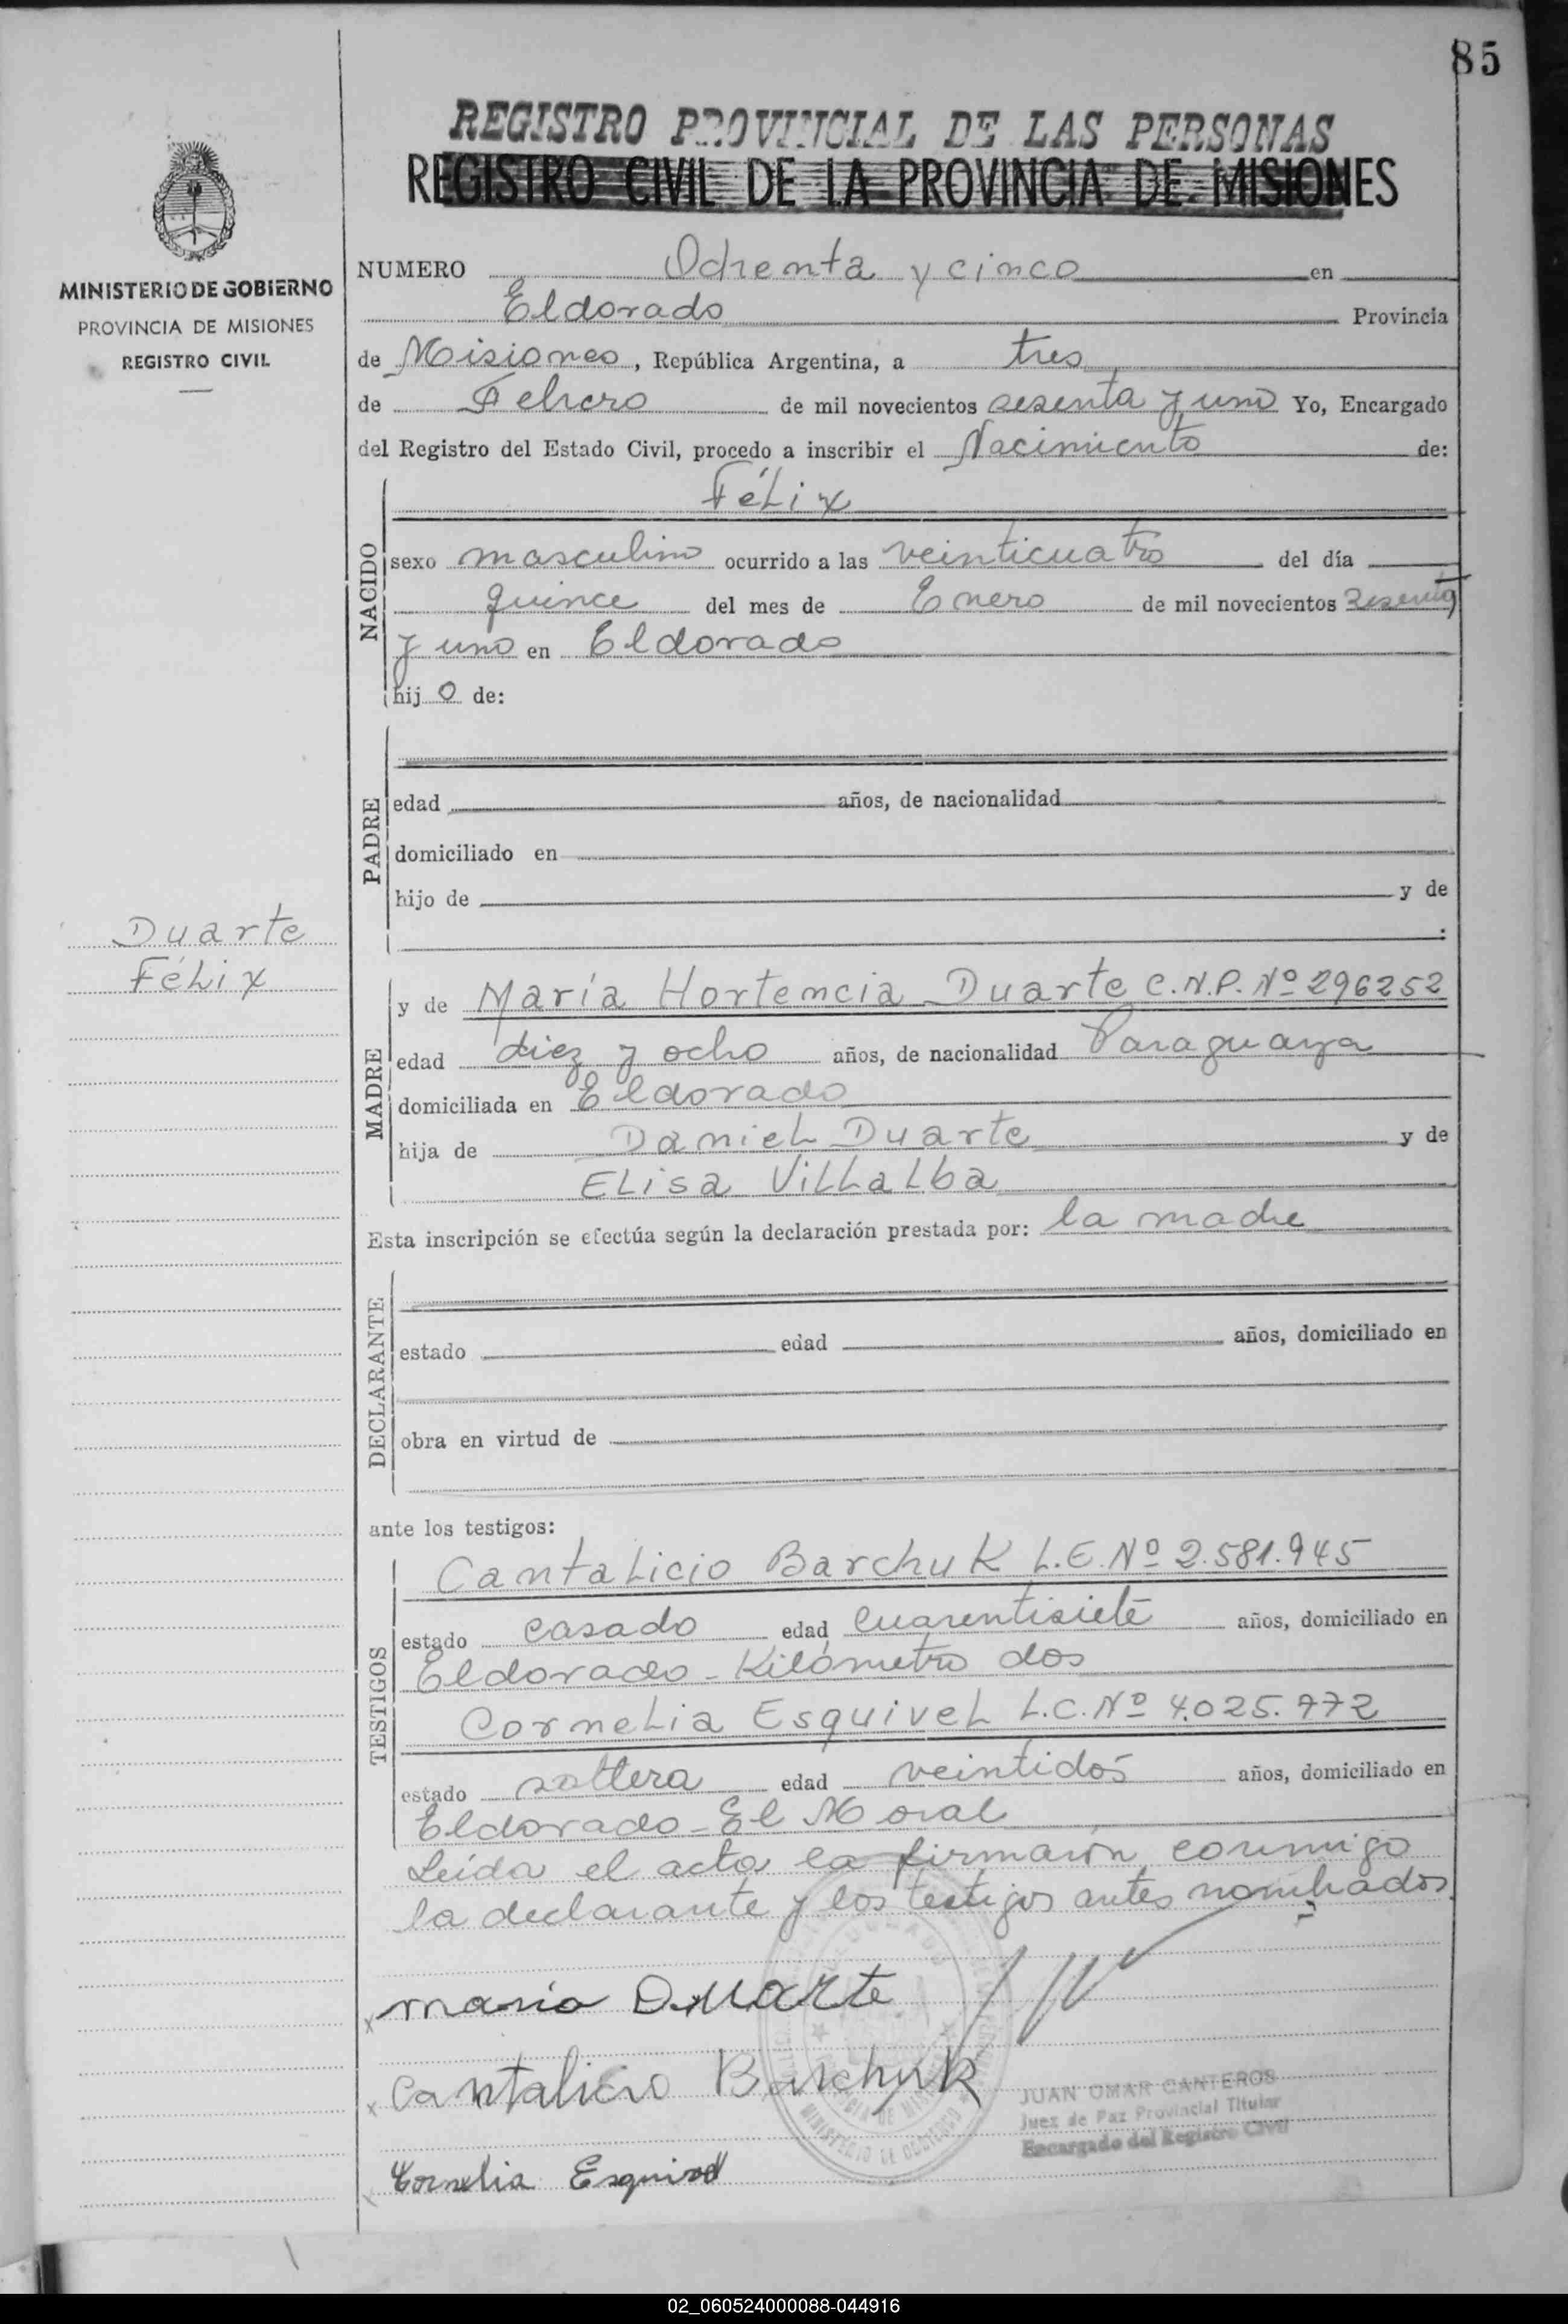 85
REGISTRO PROVINCIAL DE LAS PERSONAS
REGISTRO CIVIL DE LA PROVINCIA DE MISIONES
MINISTERIO DE GOBIERNO
PROVINCIA DE MISIONES
REGISTRO CIVIL
NUMERO Ochenta y cinco en
Eldorado Provincia
de Misiones, República Argentina, a tres
de Febrero de mil novecientos sesenta y uno Yo, Encargado
del Registro del Estado Civil, procedo a inscribir el Nacimiento de:
NACIDO
Félix
sexo masculino ocurrido a las veinticuatro del día
quince del mes de Enero de mil novecientos sesenta
y uno en Eldorado
hijo de:
PADRE
edad años, de nacionalidad
domiciliado en
hijo de y de
:
Duarte
Félix
MADRE
y de María Hortencia Duarte C.N.P. Nº 296252
edad diez y ocho años, de nacionalidad Paraguaya
domiciliada en Eldorado
hija de Daniel Duarte y de
Elisa Villalba
Esta inscripción se efectúa según la declaración prestada por: la madre
DECLARANTE
estado edad años, domiciliado en
obra en virtud de
ante los testigos:
TESTIGOS
Cantalicio Barchuk L.E. Nº 2.581.945
estado casado edad cuarentisiete años, domiciliado en
Eldorado - Kilómetro dos
Cornelia Esquivel L.C. Nº 4.025.772
estado soltera edad veintidos años, domiciliado en
Eldorado - El Moral
Leída el acta la firmaron conmigo
la declarante y los testigos antes nombrados
x maria Duarte
x Cantalicio Barchuk
JUAN OMAR CANTEROS
Juez de Paz Provincial Titular
Encargado del Registro Civil
x Cornelia Esquivel
MINISTERIO DE GOBIERNO
02_060524000088-044916